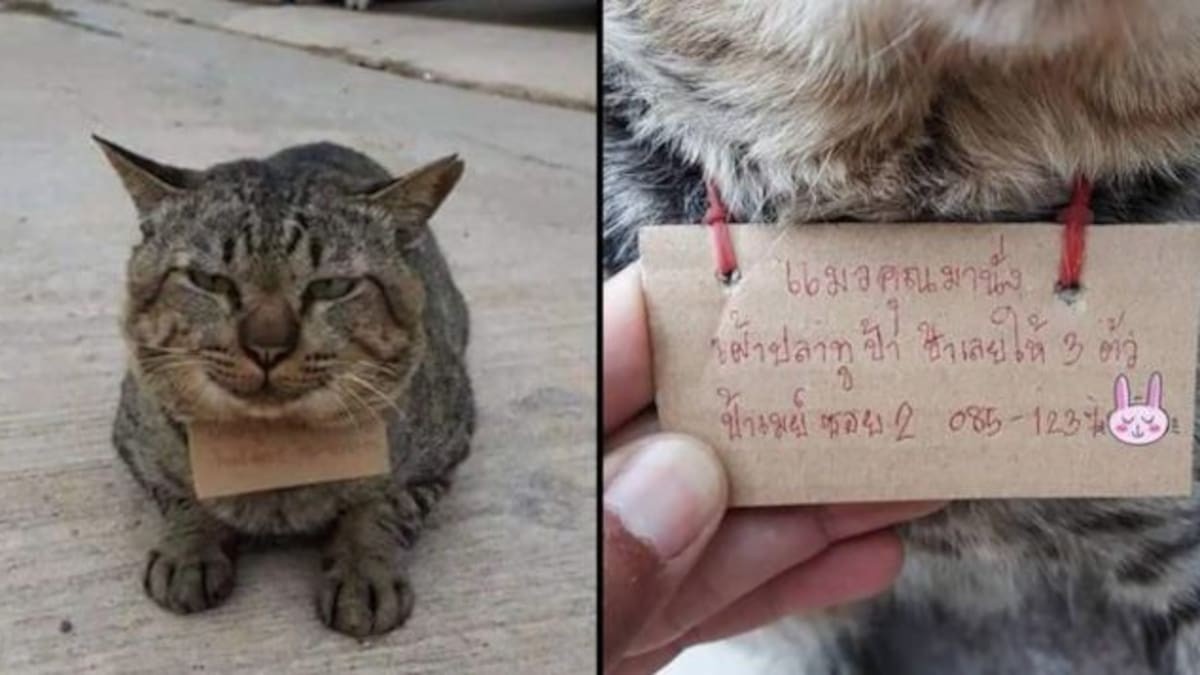 แมวคุณมานั่ง
เฝ้าปลาทู ป้า ป้าเลยให้ 3 ตัว
ป้าเมย์ ซอย 2 085-123